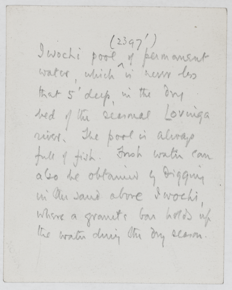 (2397')
Iwochi pool ^ of permanent
water, which is never less
that 5' deep, in the dry
bed of the seasonal Lovinga
river. The pool is always
full of fish. Fresh water can
also be obtained by digging
in the sand above Iwochi,
where a granite bar holds up
the water during the dry season.